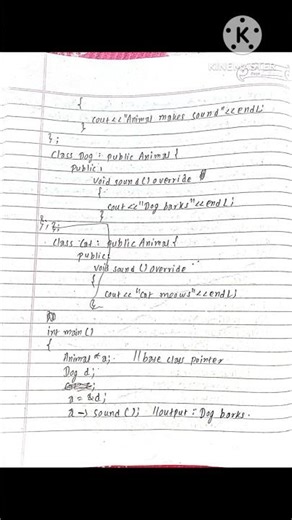 K
{
cout<<"Animal makes sound"<<endl;
}
};
class Dog : public Animal {
public:
void sound () override
{
cout<<"Dog barks"<<endl;
}
};
class Cat : public Animal {
public
void sound () override
{
cout<<"Cat meows"<<endl;
int main ()
{
Animal *a; //base class pointer
Dog d;
a = &d;
a -> sound (); //output : Dog barks.